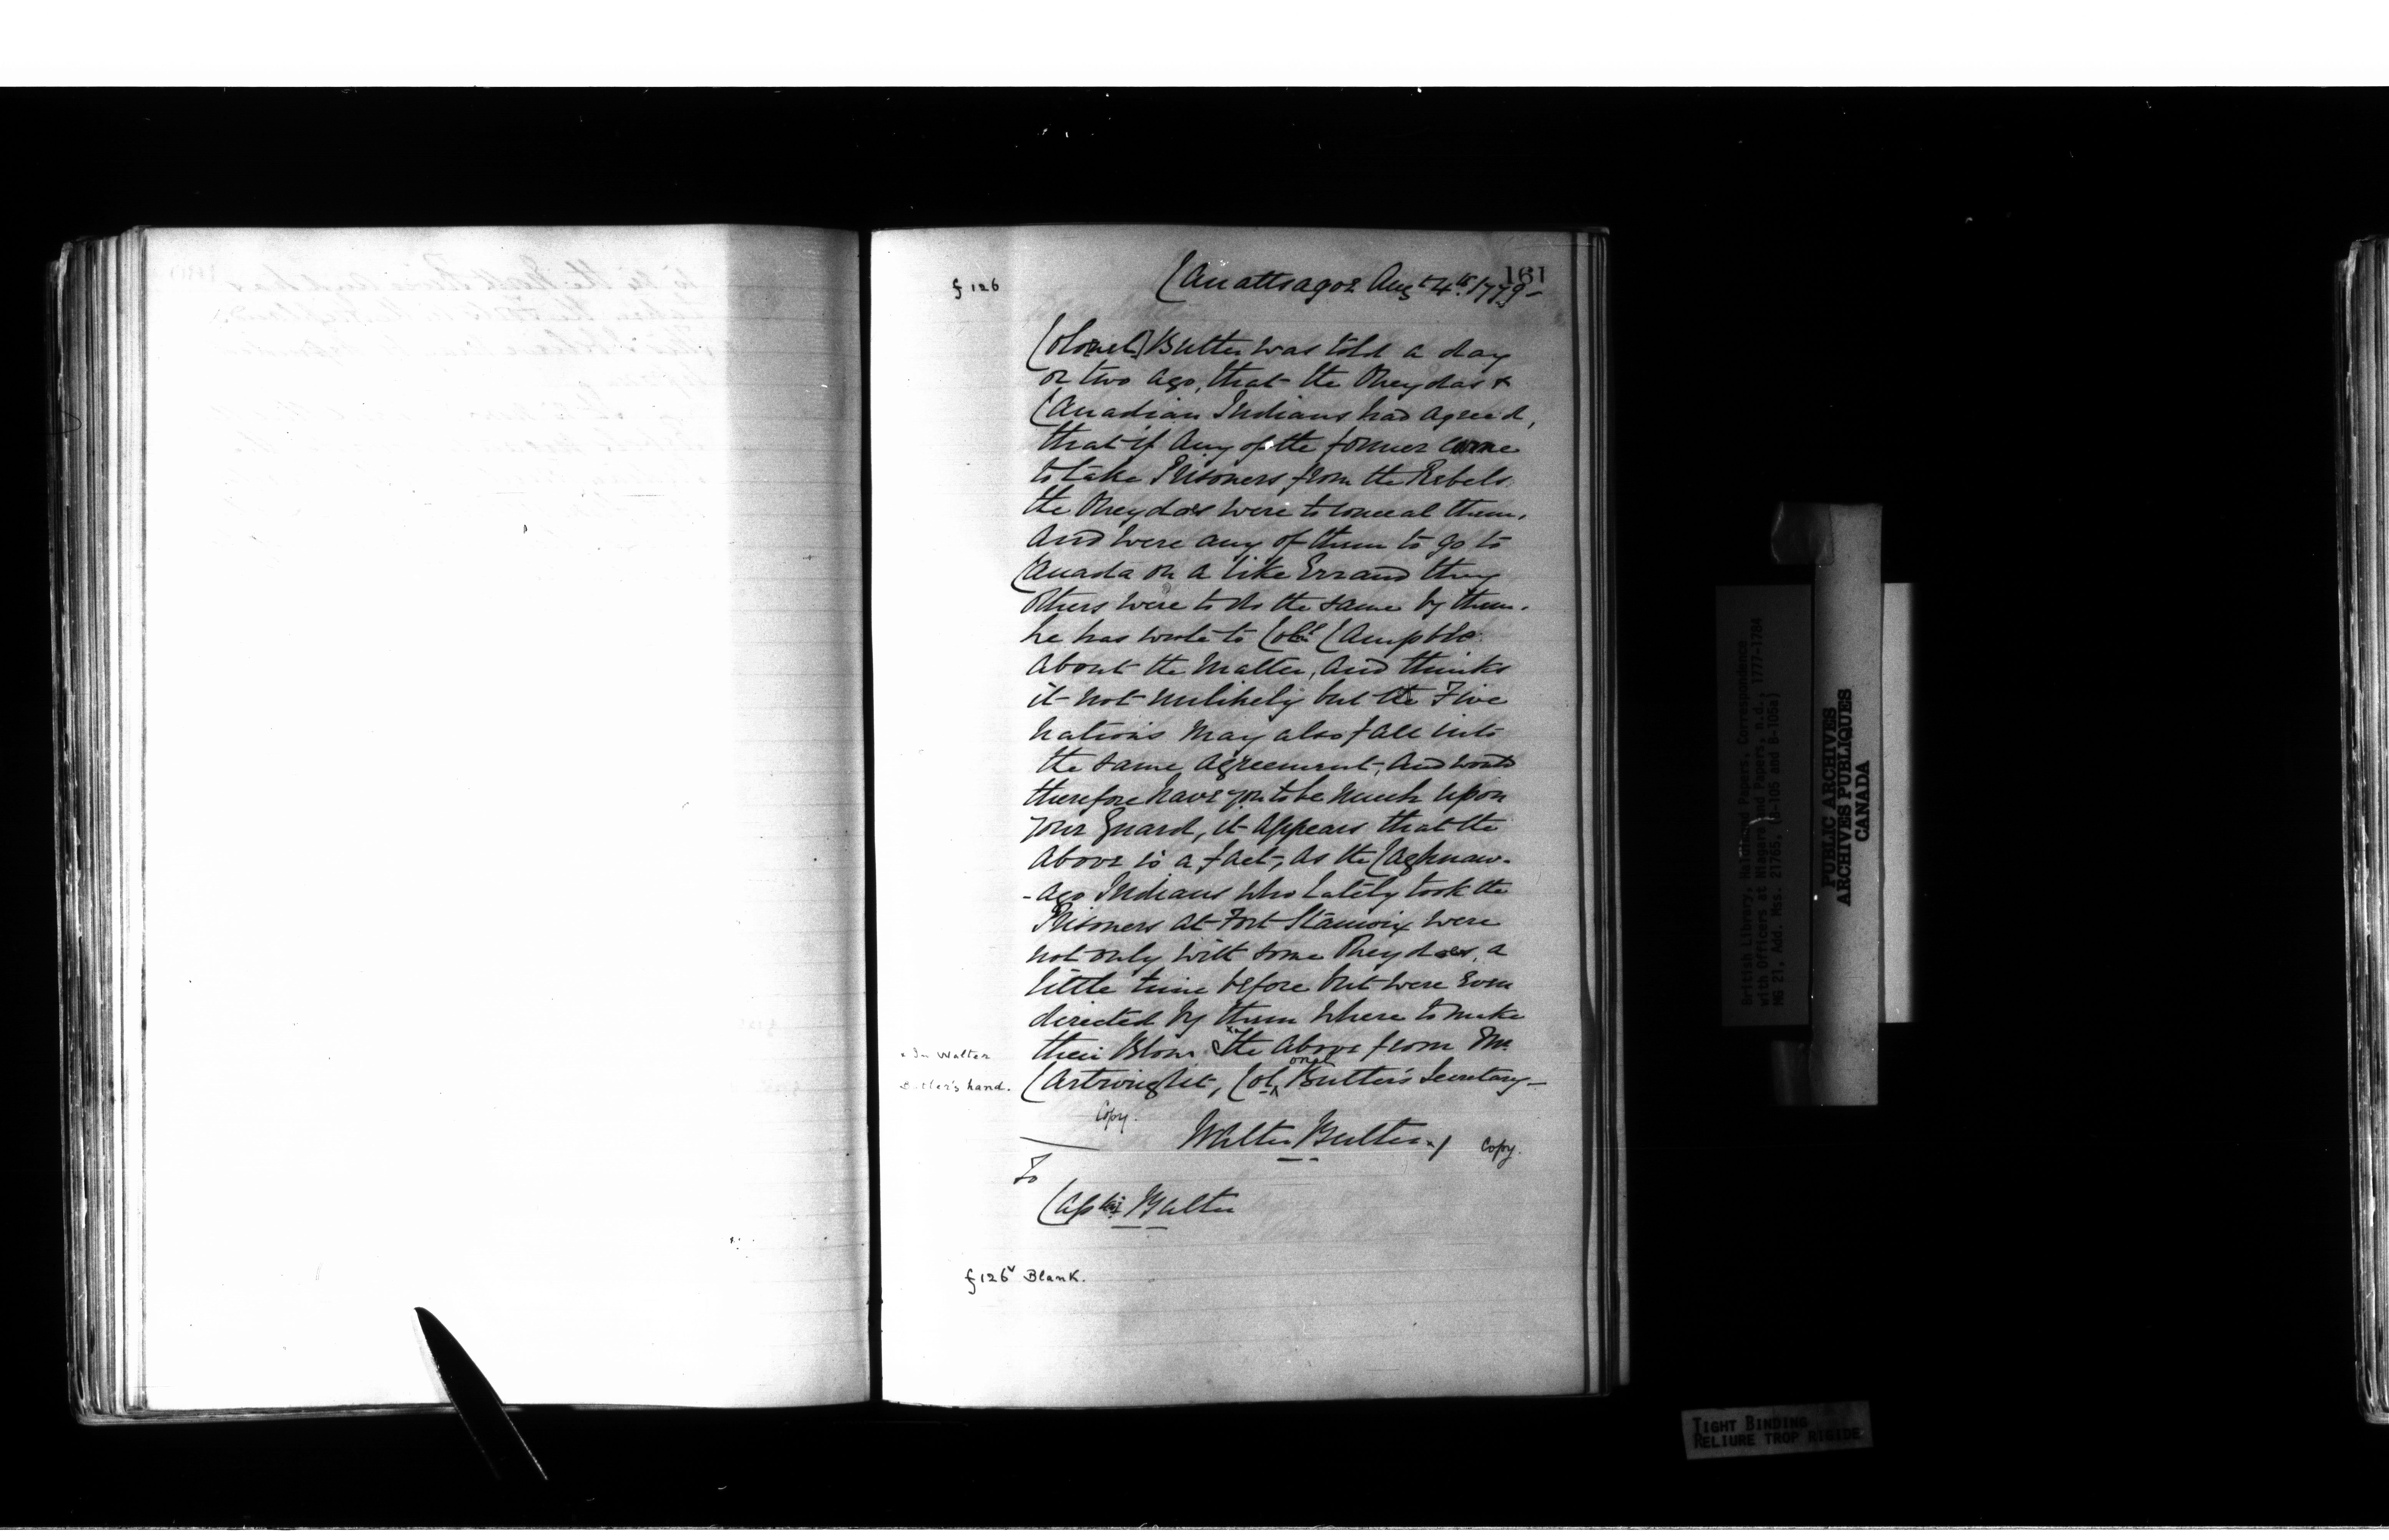 161
f 126
Canattsagoe Augt 4th 1779-
Colonel Butler was told a day
or two ago, that the Oneydas &
Canadian Indians had agreed,
that if any of the former came
to take Prisoners from the Rebels
the Oneydas were to conceal them,
and were any of them to go to
Canada on a like Errand they
others were to do the same by them.
he has wrote to Coll Campble
about the Matter, and thinks
it not unlikely but the Five
Nations may also fall into
the same agreement, and would
therefore have you to be much upon
your Guard, it appears that the
above is a fact, as the Caghnaw-
-ago Indians who lately took the
Prisoners at Fort Stanwix were
not only with some Oneydas, a
little time before but were even
directed by them where to make
their Blow. x The above from Mr
x In Walter
Butler's hand.
Cartwright, Colonel Butler's Secretary-
Copy.
Walter Butler x)
Copy.
To
Captn Butler
f 126v Blank.
British Library, Haldimand Papers, Correspondence
with Officers at Niagara and Papers, n.d., 1777-1784
MG 21, Add. Mss. 21765, (B-105 and B-105a)
PUBLIC ARCHIVES
ARCHIVES PUBLIQUES
CANADA
TIGHT BINDING
RELIURE TROP RIGIDE